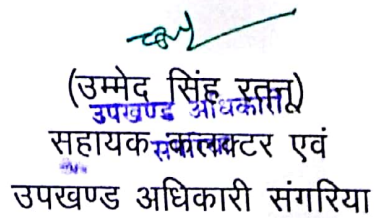 (उम्मेद सिंह रतनू)
उपखण्ड अधिकारी
सहायक कलक्टर एवं
उपखण्ड अधिकारी संगरिया